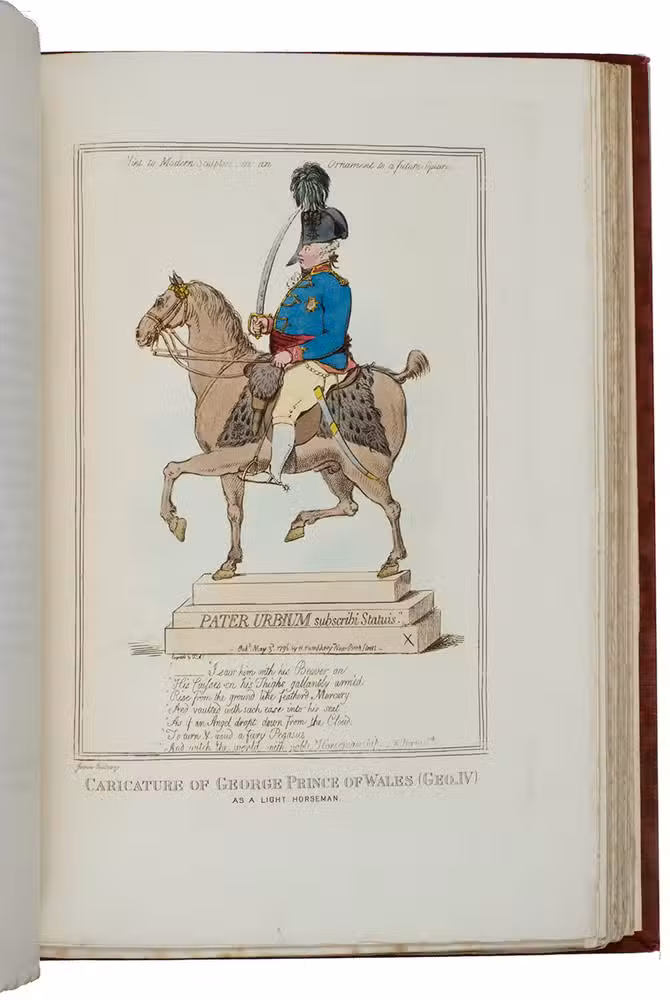 Hint to Modern Sculptors as an Ornament to a future Square
PATER URBIUM subscribi Statuis."
X
Pubd. May 3d. 1796 by H. Humphrey New Bond Street
"I saw him with his Beaver on
"His Cuisses on his Thighs gallantly armed
Rise from the ground like feather'd Mercury
And vaulted with such ease into his seat
"As if an Angel dropt down from the Clouds
"To turn & wind a fiery Pegasus
And witch the world with noble Horsemanship
James Gillray
CARICATURE OF GEORGE PRINCE OF WALES (GEO.IV)
AS A LIGHT HORSEMAN.